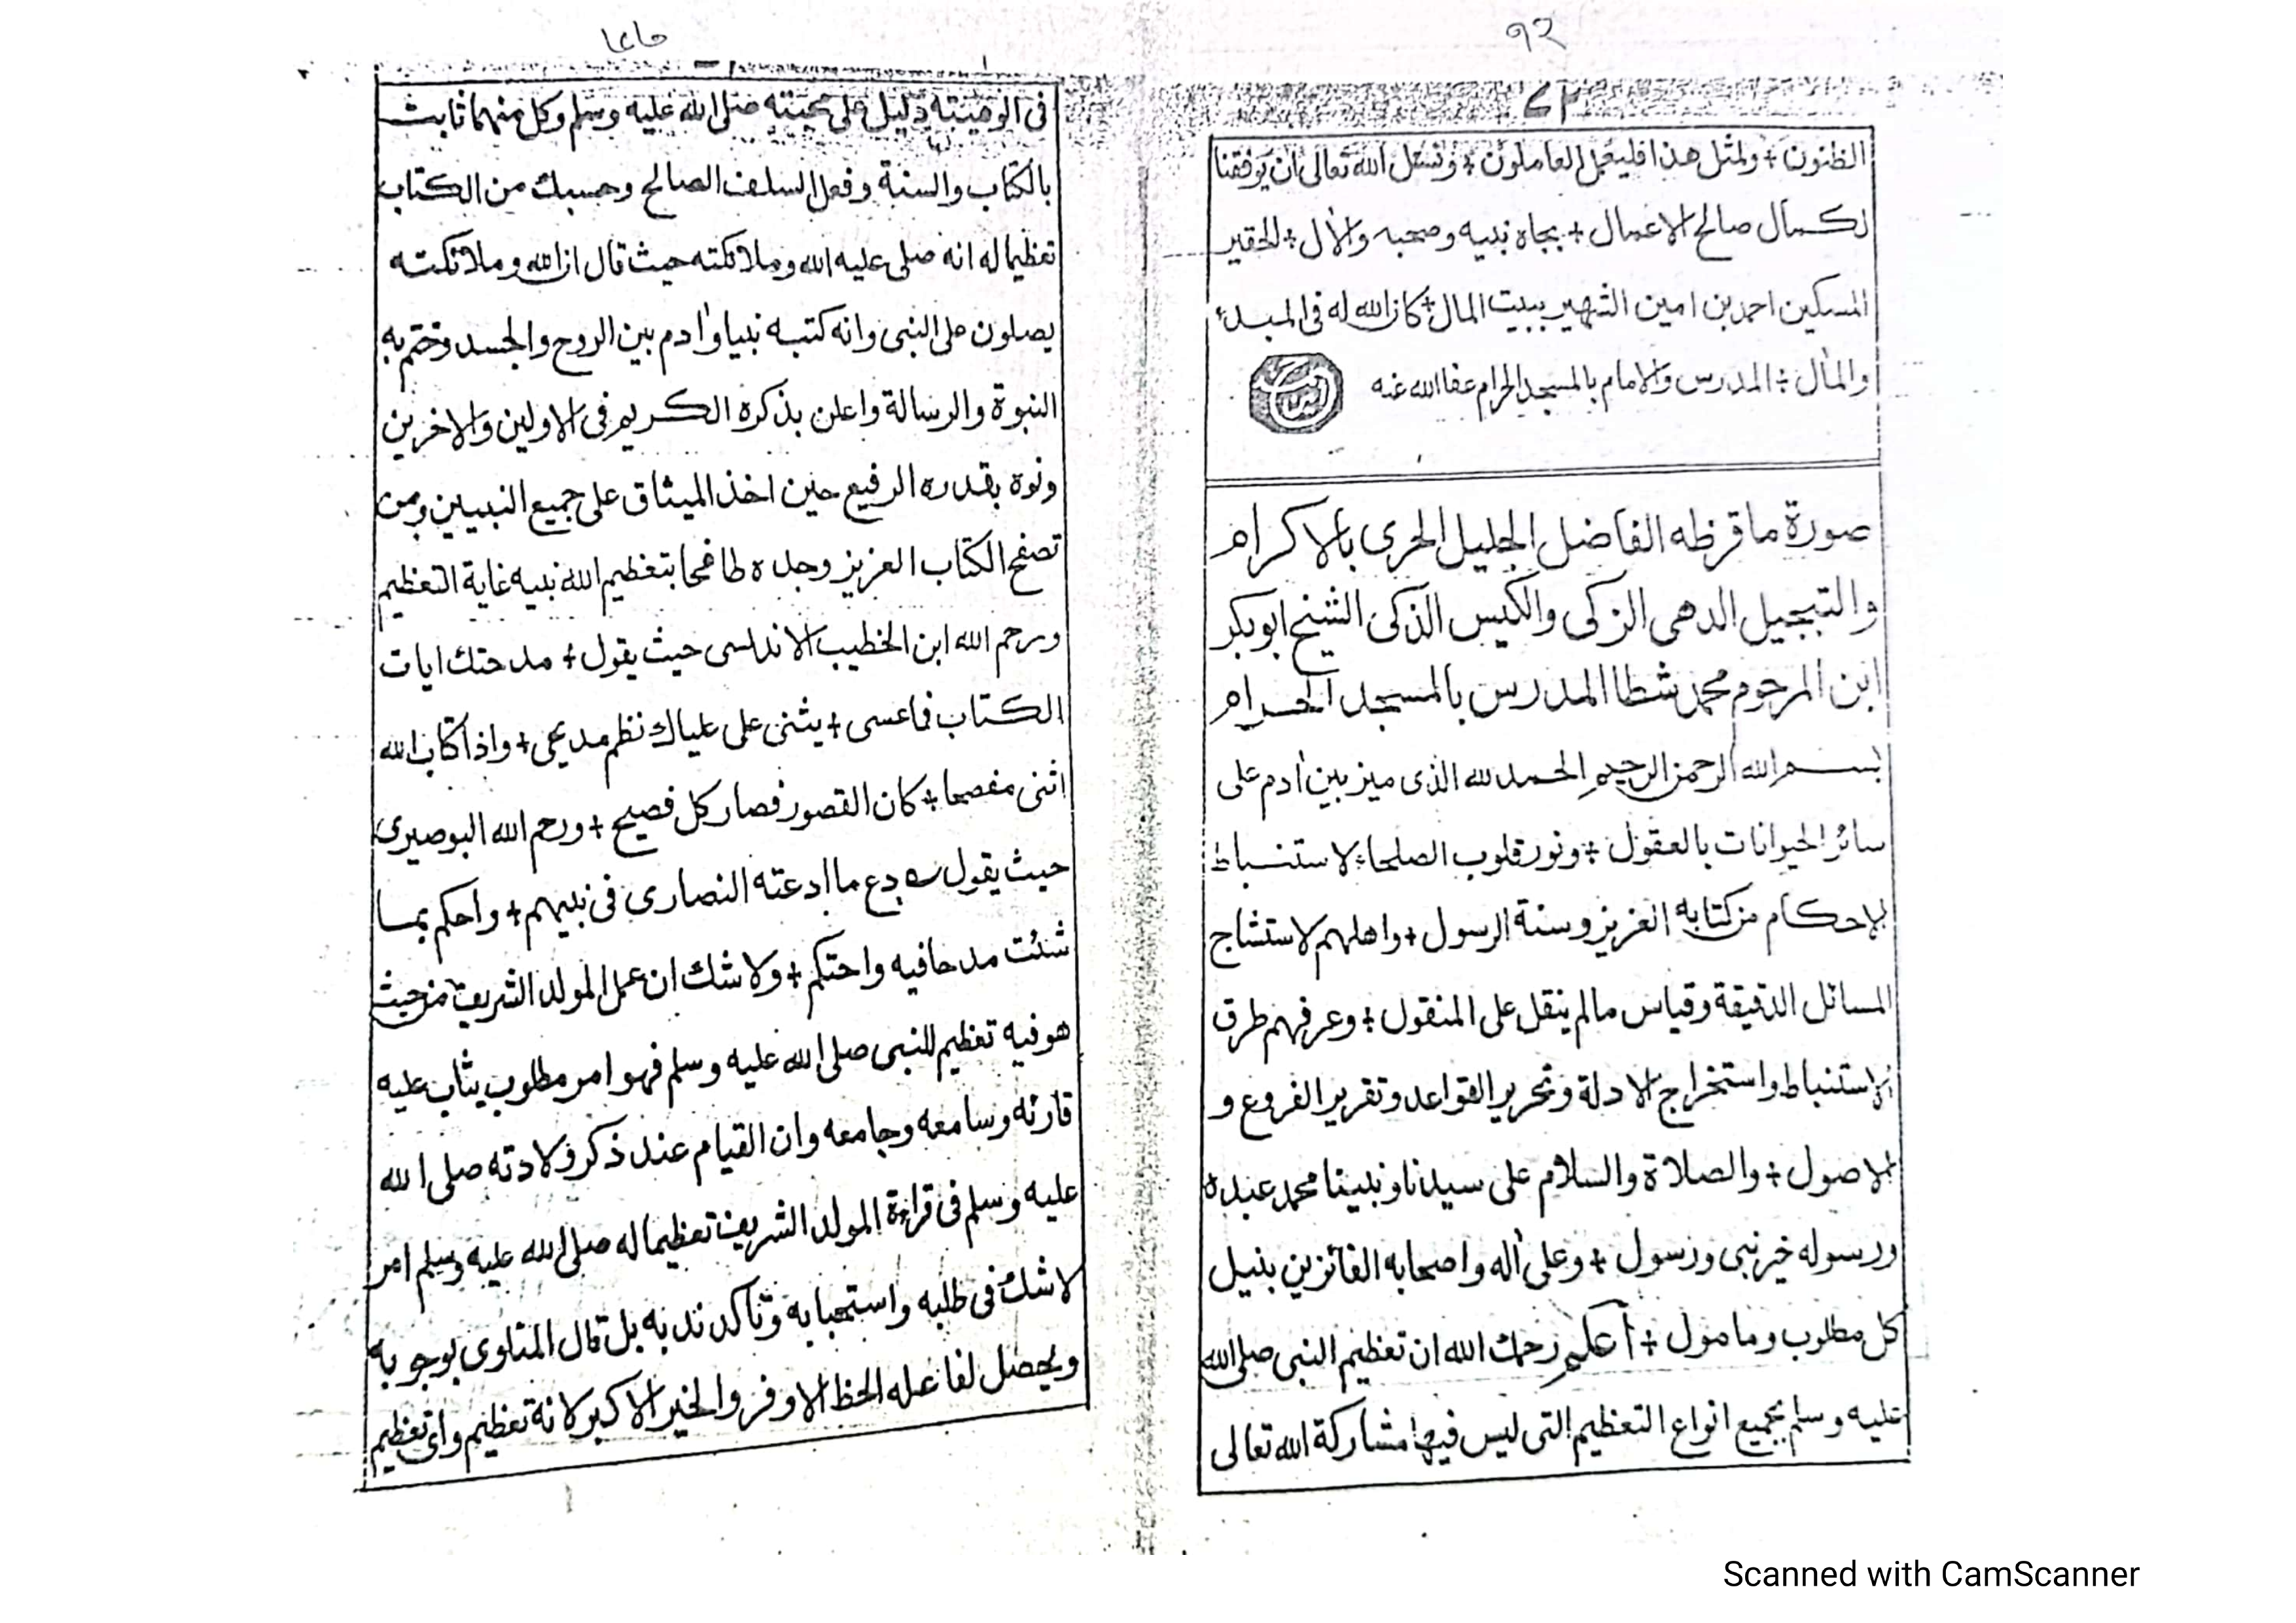 ٩٢
الظنون + ولمثل هذا فليعمل العاملون + ونسئل الله تعالى ان يوفقنا
لكمال صالح الاعمال + بجاه نبيه وصحبه والاٰل + الحقير
المسكين احمد بن امين الشهير ببيت المال + كان الله له فى المبدء
والماٰل + المدرس والامام بالمسجد الحرام عفا الله عنه
صورة ما قرظه الفاضل الجليل الحرى بالاكرام
والتبجيل الدهى الزكى والكيس الذكى الشيخ ابو بكر
ابن المرحوم محمد شطا المدرس بالمسجد الحرام
بسم الله الرحمن الرحيم الحمد لله الذى ميز بين اٰدم على
سائر الحيوانات بالعقول + ونور قلوب الصلحاء لاستنباط
الاحكام من كتابه العزيز وسنة الرسول + واهلهم لاستنتاج
المسائل الدقيقة وقياس مالم ينقل على المنقول + وعرفهم طرق
الاستنباط واستخراج الادلة وتحرير القواعد وتقرير الفروع و
الاصول + والصلاة والسلام على سيدنا ونبينا محمد عبده
ورسوله خير نبى ورسول + وعلى اٰله واصحابه الفائزين بنيل
كل مطلوب ومامول + أعلم رحمك الله ان تعظيم النبى صلى الله
عليه وسلم بجميع انواع التعظيم التى ليس فيها مشاركة الله تعالى
فى الوهيته دليل على محبته صلى الله عليه وسلم وكل منهما ثابت
بالكتاب والسنة وفعل السلف الصالح وحسبك من الكتاب
تعظيما له انه صلى عليه الله وملائكته حيث قال ان الله وملائكته
يصلون على النبى وانه كتبه نبيا واٰدم بين الروح والجسد وختم به
النبوة والرسالة واعلن بذكره الكريم فى الاولين والاخرين
ونوه بقدره الرفيع حين اخذ الميثاق على جميع النبيين ومن
تصفح الكتاب العزيز وجده طافحا بتعظيم الله نبيه غاية التعظيم
ورحم الله ابن الخطيب الاندلسى حيث يقول + مدحتك ايات
الكتاب فما عسى + يثنى على علياك نظم مديحى + واذا كتاب الله
اثنى مفصحا + كان القصور قصار كل فصيح + ورحم الله البوصيرى
حيث يقول دع ما ادعته النصارى فى نبيهم + واحكم بما
شئت مدحا فيه واحتكم + ولا شك ان عمل المولد الشريف من حيث
هو فيه تعظيم للنبى صلى الله عليه وسلم فهو امر مطلوب يثاب عليه
قارئه وسامعه وجامعه وان القيام عند ذكر ولادته صلى الله
عليه وسلم فى قراءة المولد الشريف تعظيما له صلى الله عليه وسلم امر
لا شك فى طلبه واستحبابه وتأكد ندبه بل قال المناوى بوجوبه
ويحصل لفاعله الحظ الاوفر والخير الاكبر لانه تعظيم واى تعظيم
Scanned with CamScanner